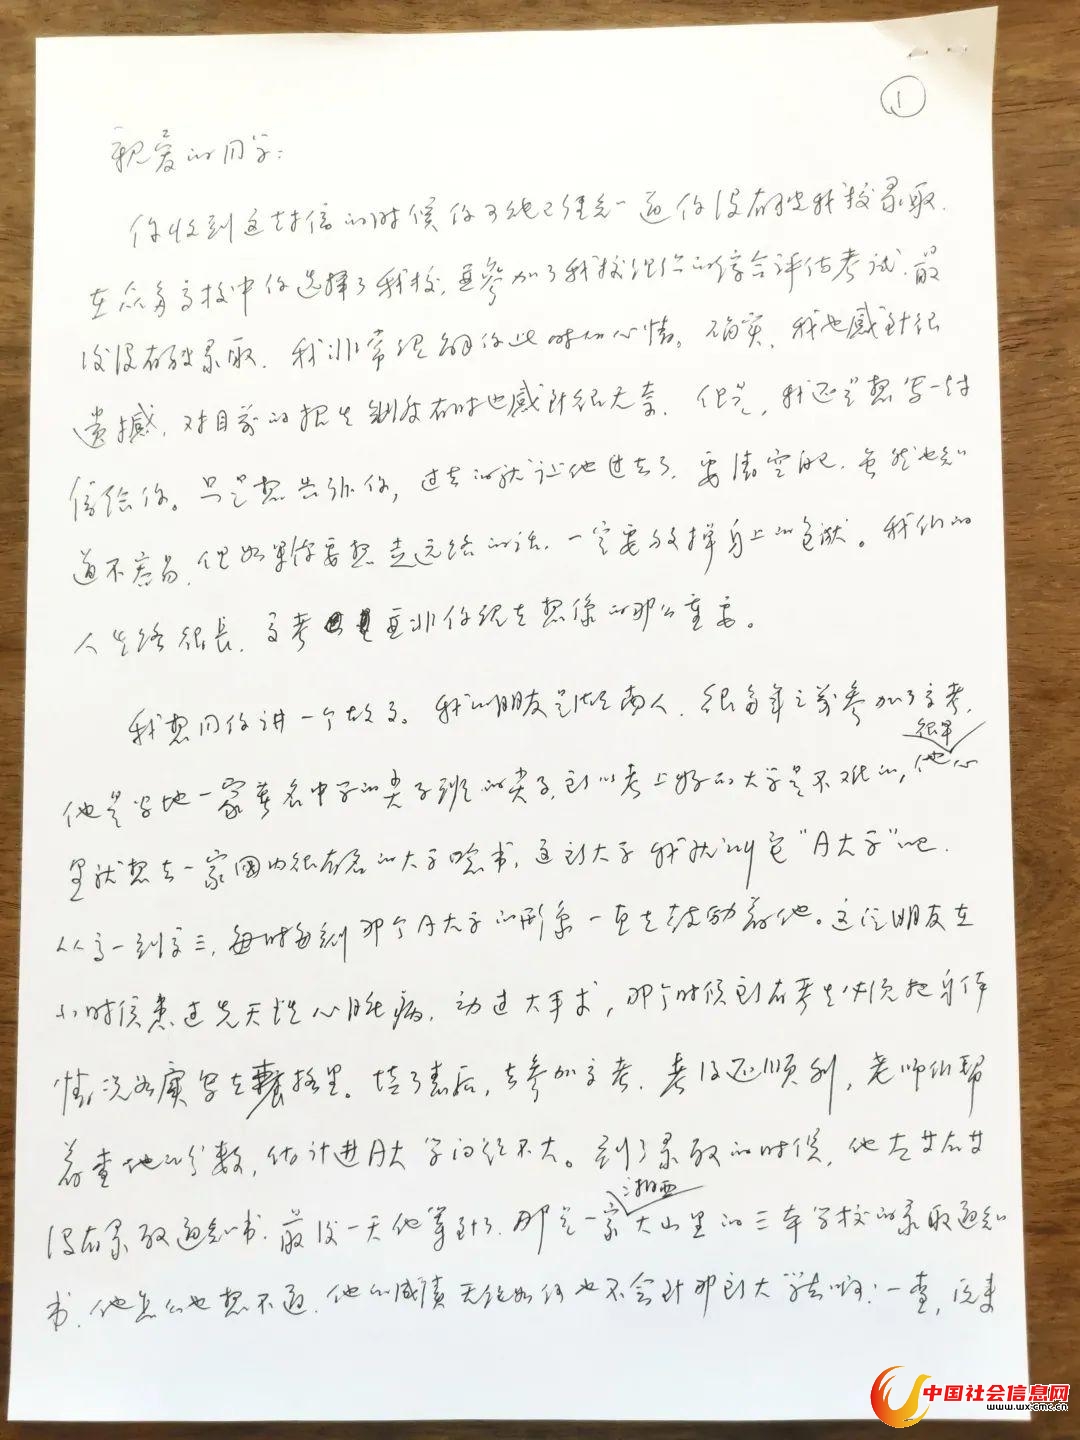 ①
亲爱的同学：
你收到这封信的时候你可能已经知道你没有被我校录取，
在众多高校中你选择了我校，并参加了我校组织的综合评估考试，最
后没有被录取，我非常理解你此时的心情。确实，我也感到很
遗憾，对目前的招生制度有时也感到很无奈，但是，我还是想写一封
信给你。只是想告诉你，过去的就让他过去了，要清空自己，虽然也知
道不容易，但如果你要想走远路的话，一定要放掉身上的包袱。我们的
人生路很长，高考并非你现在想像的那么重要。
我想同你讲一个故事。我的朋友是湖南人，很多年之前参加了高考，
很早
他是当地一家著名中学的尖子班的尖子，所以考上好的大学是不难的，他心
里就想去一家国内很有名的大学唸书，这所大学我就叫它“A大学”吧。
从高一到高三，每时每刻那个A大学的形象一直在鼓励着他。这位朋友在
小时候患过先天性心脏病，动过大手术，那个时候所有考生必须把身体
情况如实写在表格里。填了表后，去参加高考，考得还顺利，老师们帮
着查他的分数，估计进A大学问题不大。到了录取的时候，他左等右等
湘西
没有录取通知书，最后一天他等到了，那是一家大山里的三本学校的录取通知
书，他怎么也想不通，他的成绩无论如何也不会到那所大学去啊！一查，原来
中国社会信息网
www.wx-cmc.cn